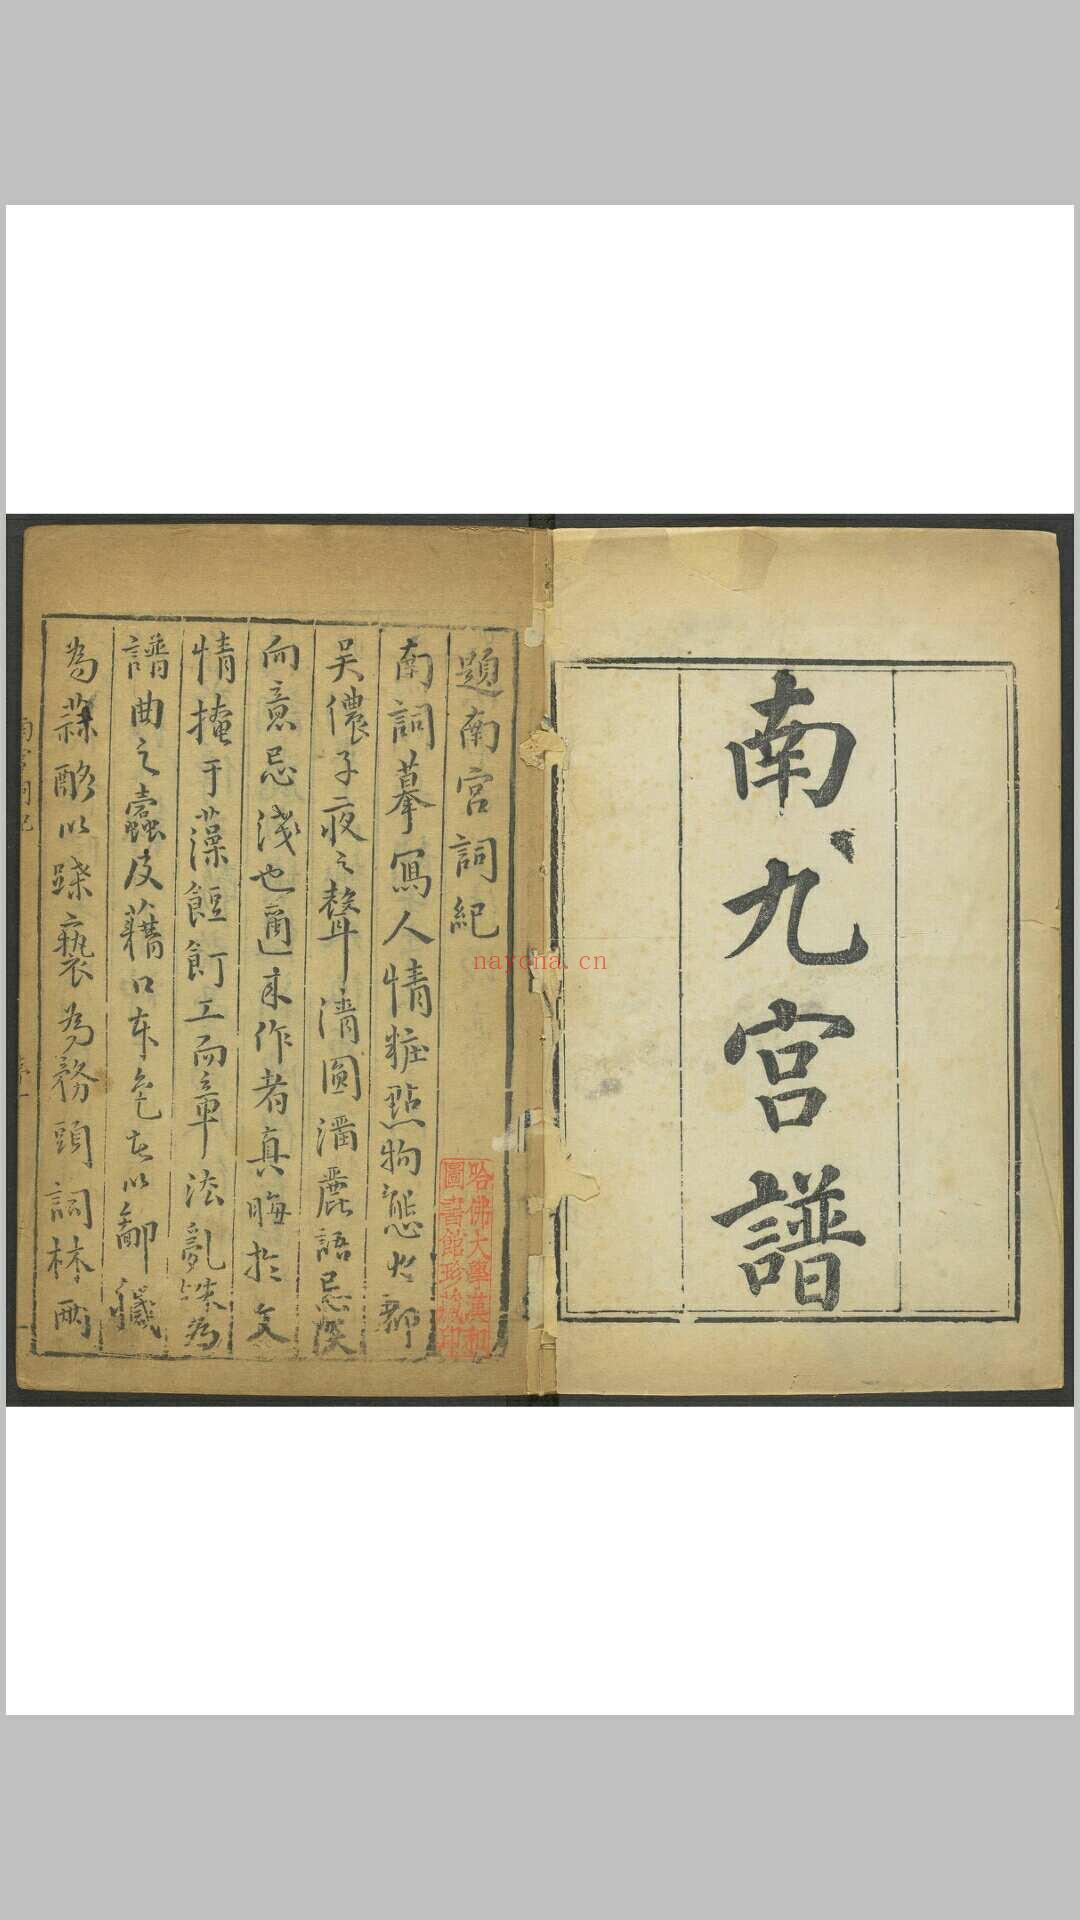 南九宮譜
題南宮詞紀
南詞摹寫人情粧點物態大都
吳儂子夜之聲清圓瀏麗語忌深
向意忌淺也邇来作者真晦於文
情掩于藻飣餖工而章法亂殊為
譜曲之蠹及藉口本色者以鄙穢
為蒜酪以蹀褻為務頭詞林兩
哈佛大學漢和
圖書館珍藏印
nayona.cn